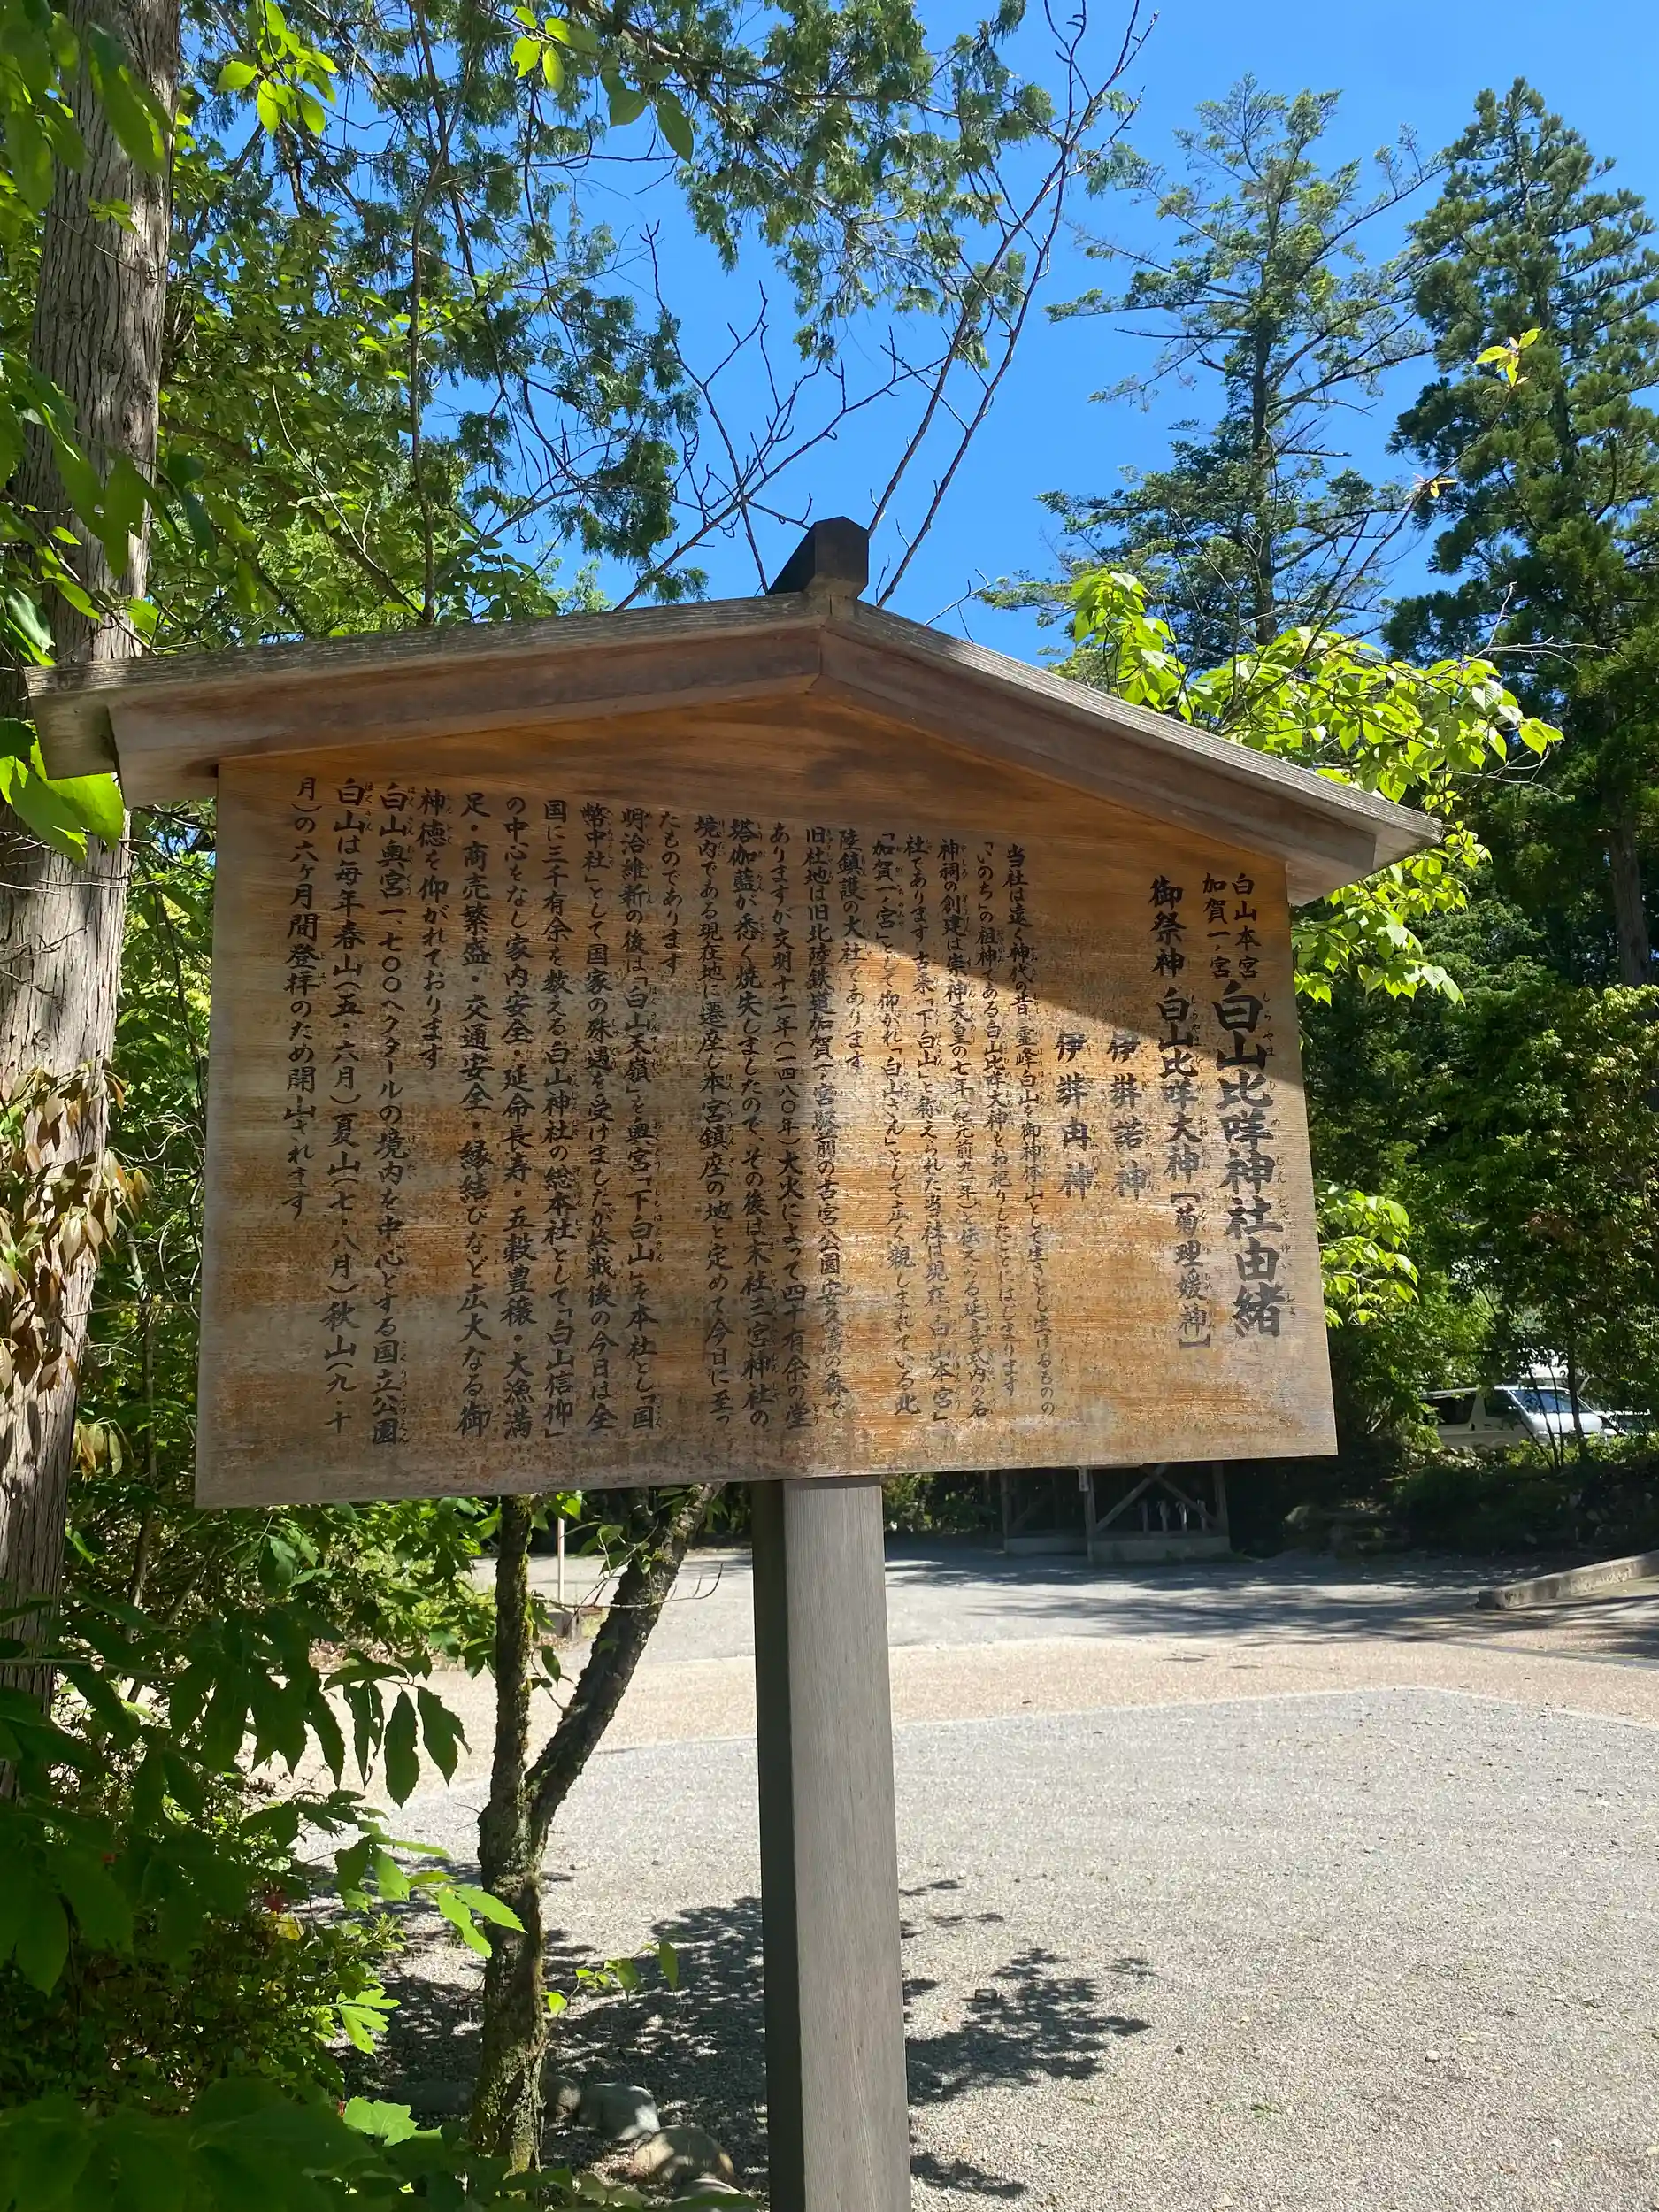 白山本宮
加賀一ノ宮
白山比咩神社由緒
御祭神 白山比咩大神［菊理媛神］
伊弉諾神
伊弉冉神
当社は遠く神代の昔 霊峰白山を御神体山として生きとし生けるものの
「いのち」の祖神である白山比咩大神をお祀りしたことにはじまります
神祠の創建は崇神天皇の七年（紀元前九一年）と伝える延喜式内の名
社であります 古来「下白山」と称えられた当社は現在「白山本宮」
「加賀一ノ宮」として仰がれ「白山さん」として広く親しまれている北
陸鎮護の大社であります
旧社地は旧北陸鉄道加賀一ノ宮駅前の古宮公園 安久濤の森で
ありますが文明十二年（一四八〇年）大火によって四十有余の堂
塔伽藍が悉く焼失しましたので、その後は末社三宮神社の
境内である現在地に遷座し本宮鎮座の地と定めて今日に至っ
たものであります
明治維新の後は「白山天嶺」を奥宮「下白山」を本社とし「国
幣中社」として国家の殊遇を受けましたが終戦後の今日は全
国に三千有余を数える白山神社の総本社として「白山信仰」
の中心をなし家内安全・延命長寿・五穀豊穣・大漁満
足・商売繁盛・交通安全・縁結びなど広大なる御
神徳を仰がれております
白山奥宮一、七〇〇ヘクタールの境内を中心とする国立公園
白山は毎年春山（五・六月）夏山（七・八月）秋山（九・十
月）の六ヶ月間登拝のため開山されます